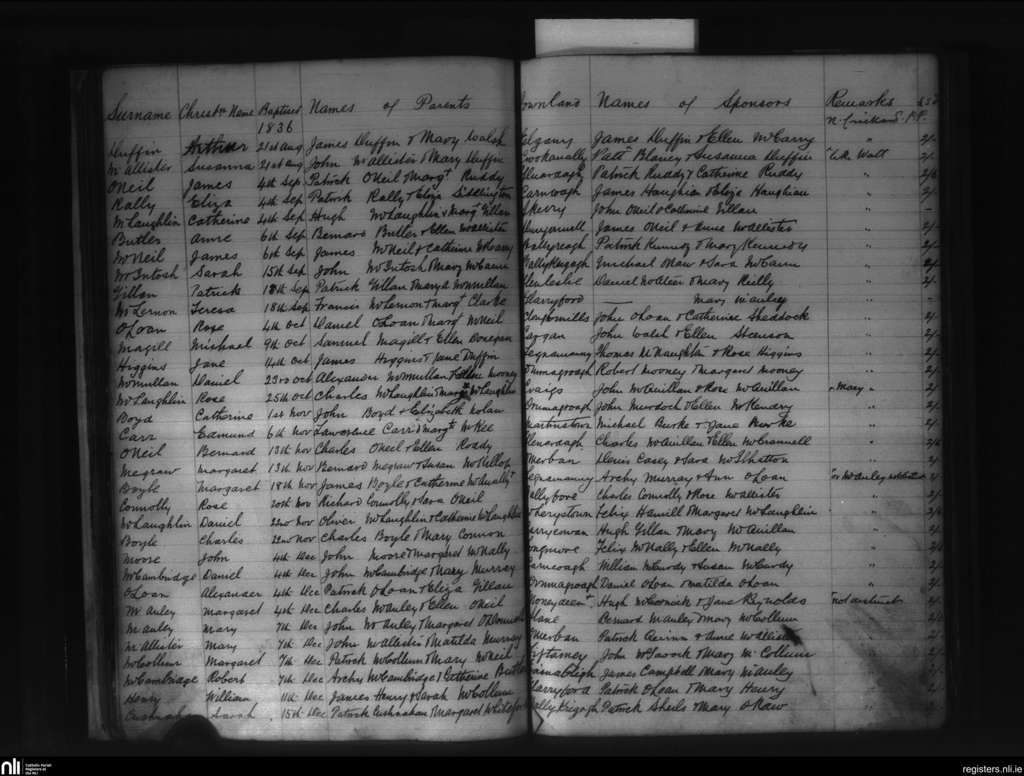 Surname Christn Name Baptised Names of Parents Townland Names of Sponsors Remarks
1836
Duffin Arthur 21st Aug James Duffin & Mary Walsh James Duffin & Ellen McGarry " 2/-
McAllister Susanna 21st Aug John McAllister & Mary Duffin Patt Blaney & Susanna Duffin 2/-
ONeil James 4th Sep Patrick ONeil & Margt Ruddy Patrick Ruddy & Catherine Ruddy " 2/6
Rally Eliza 4th Sep Patrick Rally & Eliza Siddlington Carncoagh James Haughian & Eliza Haughian " 2/-
McLaughlin Catherine 4th Sep Hugh McLaughlin & Margt Gillan Skerry John ONeil & Catherine Gillan " -
Butler Anne 6th Sep Bernard Butler & Ellen McAllister James ONeil & Anne McAllister " 2/-
McNeil James 6th Sep James McNeil & Catherine McGarry Ballyreagh Patrick Kennedy & Mary Kennedy " 2/-
McIntosh Sarah 15th Sep John McIntosh & Mary McCann Michael OHaw & Sara McCann " 2/-
Gillan Patrick 18th Sep Patrick Gillan & Mary McMullan Glenleslie Daniel & Mary Reilly " 2/-
McLernon Teresa 18th Sep Francis McLernon & Margt Clarke Mary McAuley " -
OLoan Rose 4th Oct Daniel OLoan & Margt McNeil John OLoan & Catherine Shaddock " 2/-
Magill Michael 9th Oct Samuel Magill & Ellen Donegan Cargan John Walsh & Ellen " 2/-
Higgins Jane 14th Oct James Higgins & Jane Duffin Thomas McNaughten & Rose Higgins " 2/-
McMullan Daniel 23rd Oct Alexander McMullan & Ellen Mooney Robert Mooney & Margaret Mooney " 2/-
McLaughlin Rose 25th Oct Charles McLaughlin & Margt McLaughlin Craigs John McQuillan & Rose McQuillan " Mary " 2/-
Boyd Catherine 1st Nov John Boyd & Elizabeth Nolan John Murdoch & Ellen McKendry " 2/-
Carr Edmund 6th Nov Lawrence Carr & Margt McKee Martinstown Michael Burke & Jane Burke " 2/-
ONeil Bernard 13th Nov Charles ONeil & Ellen Roddy Charles McQuillan & Ellen McCrannell " 2/6
Megraw Margaret 13th Nov Bernard Megraw & Susan McKillop Denis Casey & Sara McIlhatton " 2/-
Boyle Margaret 18th Nov James Boyle & Catherine Archy Murray & Ann OLoan
Connolly Rose 20th Nov Richard Connolly & Sara ONeil Charles Connolly & Rose McAllister " 2/-
McLaughlin Daniel 22nd Nov Oliver McLaughlin & Catherine McLaughlin Felix Hamill & Margaret McLaughlin " 2/-
Boyle Charles 22nd Nov Charles Boyle & Mary Connon Hugh Gillan & Mary McQuillan " 2/-
Moore John 4th Dec John Moore & Margaret McNally Longmore Felix McNally & Ellen McNally " 2/6
McCambridge Daniel 4th Dec John McCambridge & Mary Murray Carncoagh William McCurdy & Susan McCurdy " 2/-
OLoan Alexander 4th Dec Patrick OLoan & Eliza Gillan Daniel OLoan & Matilda OLoan " 2/-
McAuley Margaret 4th Dec Charles McAuley & Ellen ONeil Hugh McCormick & Jane Reynolds
McAuley Mary 7th Dec John McAuley & Margaret Bernard McAuley & Mary McCollum "
McAllister Mary 7th Dec John McAllister & Matilda Murray Patrick Quinn & Anne McAllister
McCollum Margaret 7th Dec Patrick McCollum & Mary McNeil John McGavock & Mary McCollum "
McCambridge Robert 7th Dec Archy McCambridge & Catherine James Campbell & Mary McAuley "
Henry William 11th Dec James Henry & Sarah McCollum Patrick OLoan & Mary Henry "
Cushnahan Sarah 15th Dec Patrick Cushnahan & Margaret Patrick Sheils & Mary OHaw "
nli Catholic Parish Registers at the NLI registers.nli.ie